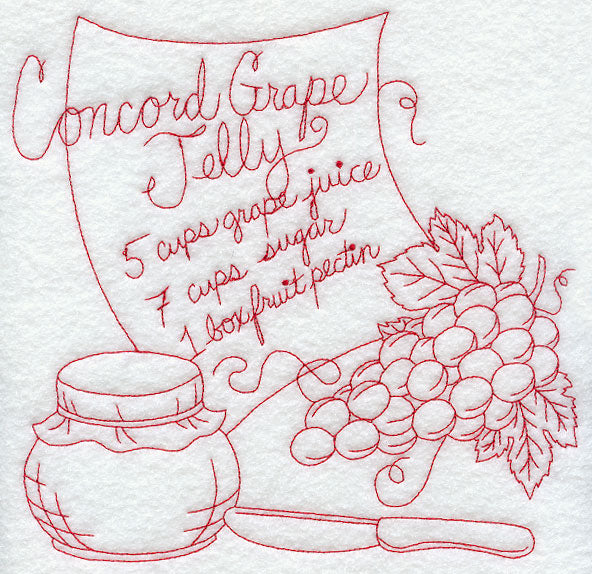 Concord Grape
Jelly
5 cups grape juice
7 cups sugar
1 box fruit pectin